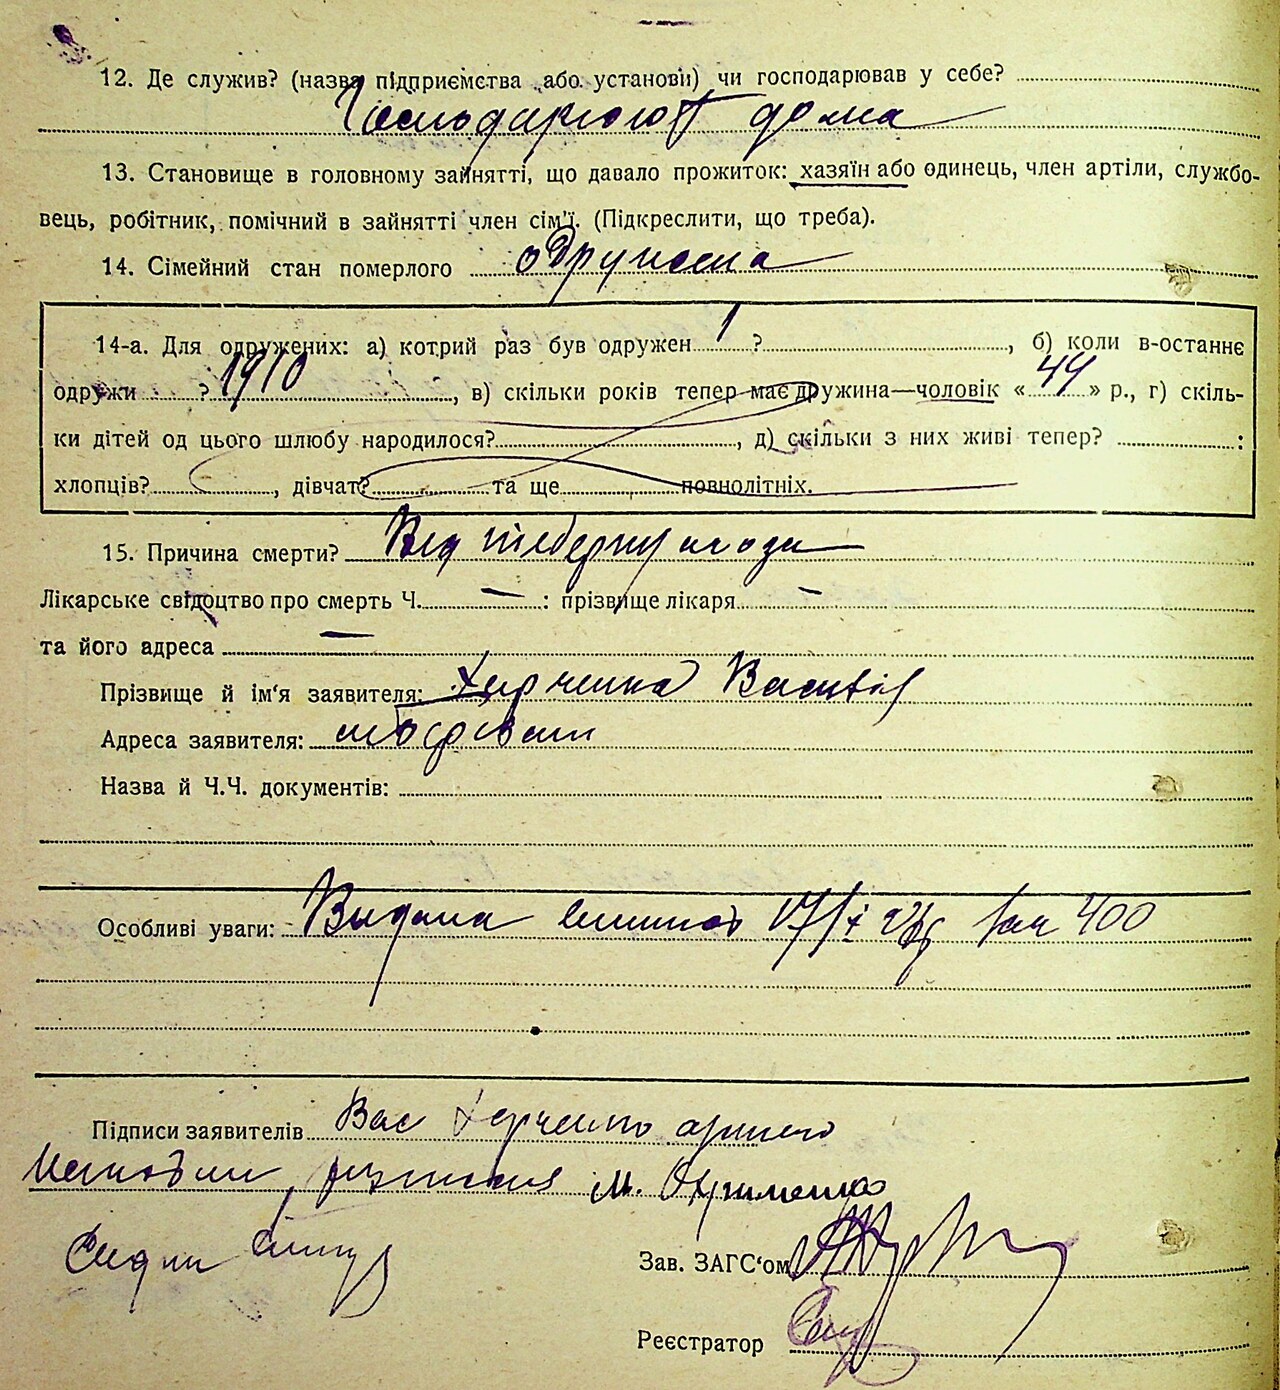 12. Де служив? (назва підприємства або установи) чи господарював у себе?
Господарюют дома
13. Становище в головному зайнятті, що давало прожиток: хазяїн або одинець, член артіли, службо-
вець, робітник, помічний в зайнятті член сім'ї. (Підкреслити, що треба).
14. Сімейний стан померлого
14-а. Для одружених: а) котрий раз був одружен 1 ?, б) коли в-останнє
одружи ? 1910, в) скільки років тепер має дружина—чоловік « 44 » р., г) скіль-
ки дітей од цього шлюбу народилося?, д) скільки з них живі тепер? :
хлопців?, дівчат? та ще повнолітніх.
15. Причина смерти? Від
Лікарське свідоцтво про смерть Ч. — : прізвище лікаря —
та його адреса —
Прізвище й ім'я заявителя: Харченка
Адреса заявителя:
Назва й Ч.Ч. документів:
Особливі уваги: Видана 400
Підписи заявителів Вас Харченко
М. Охрименко
Зав. ЗАГС'ом
Реєстратор